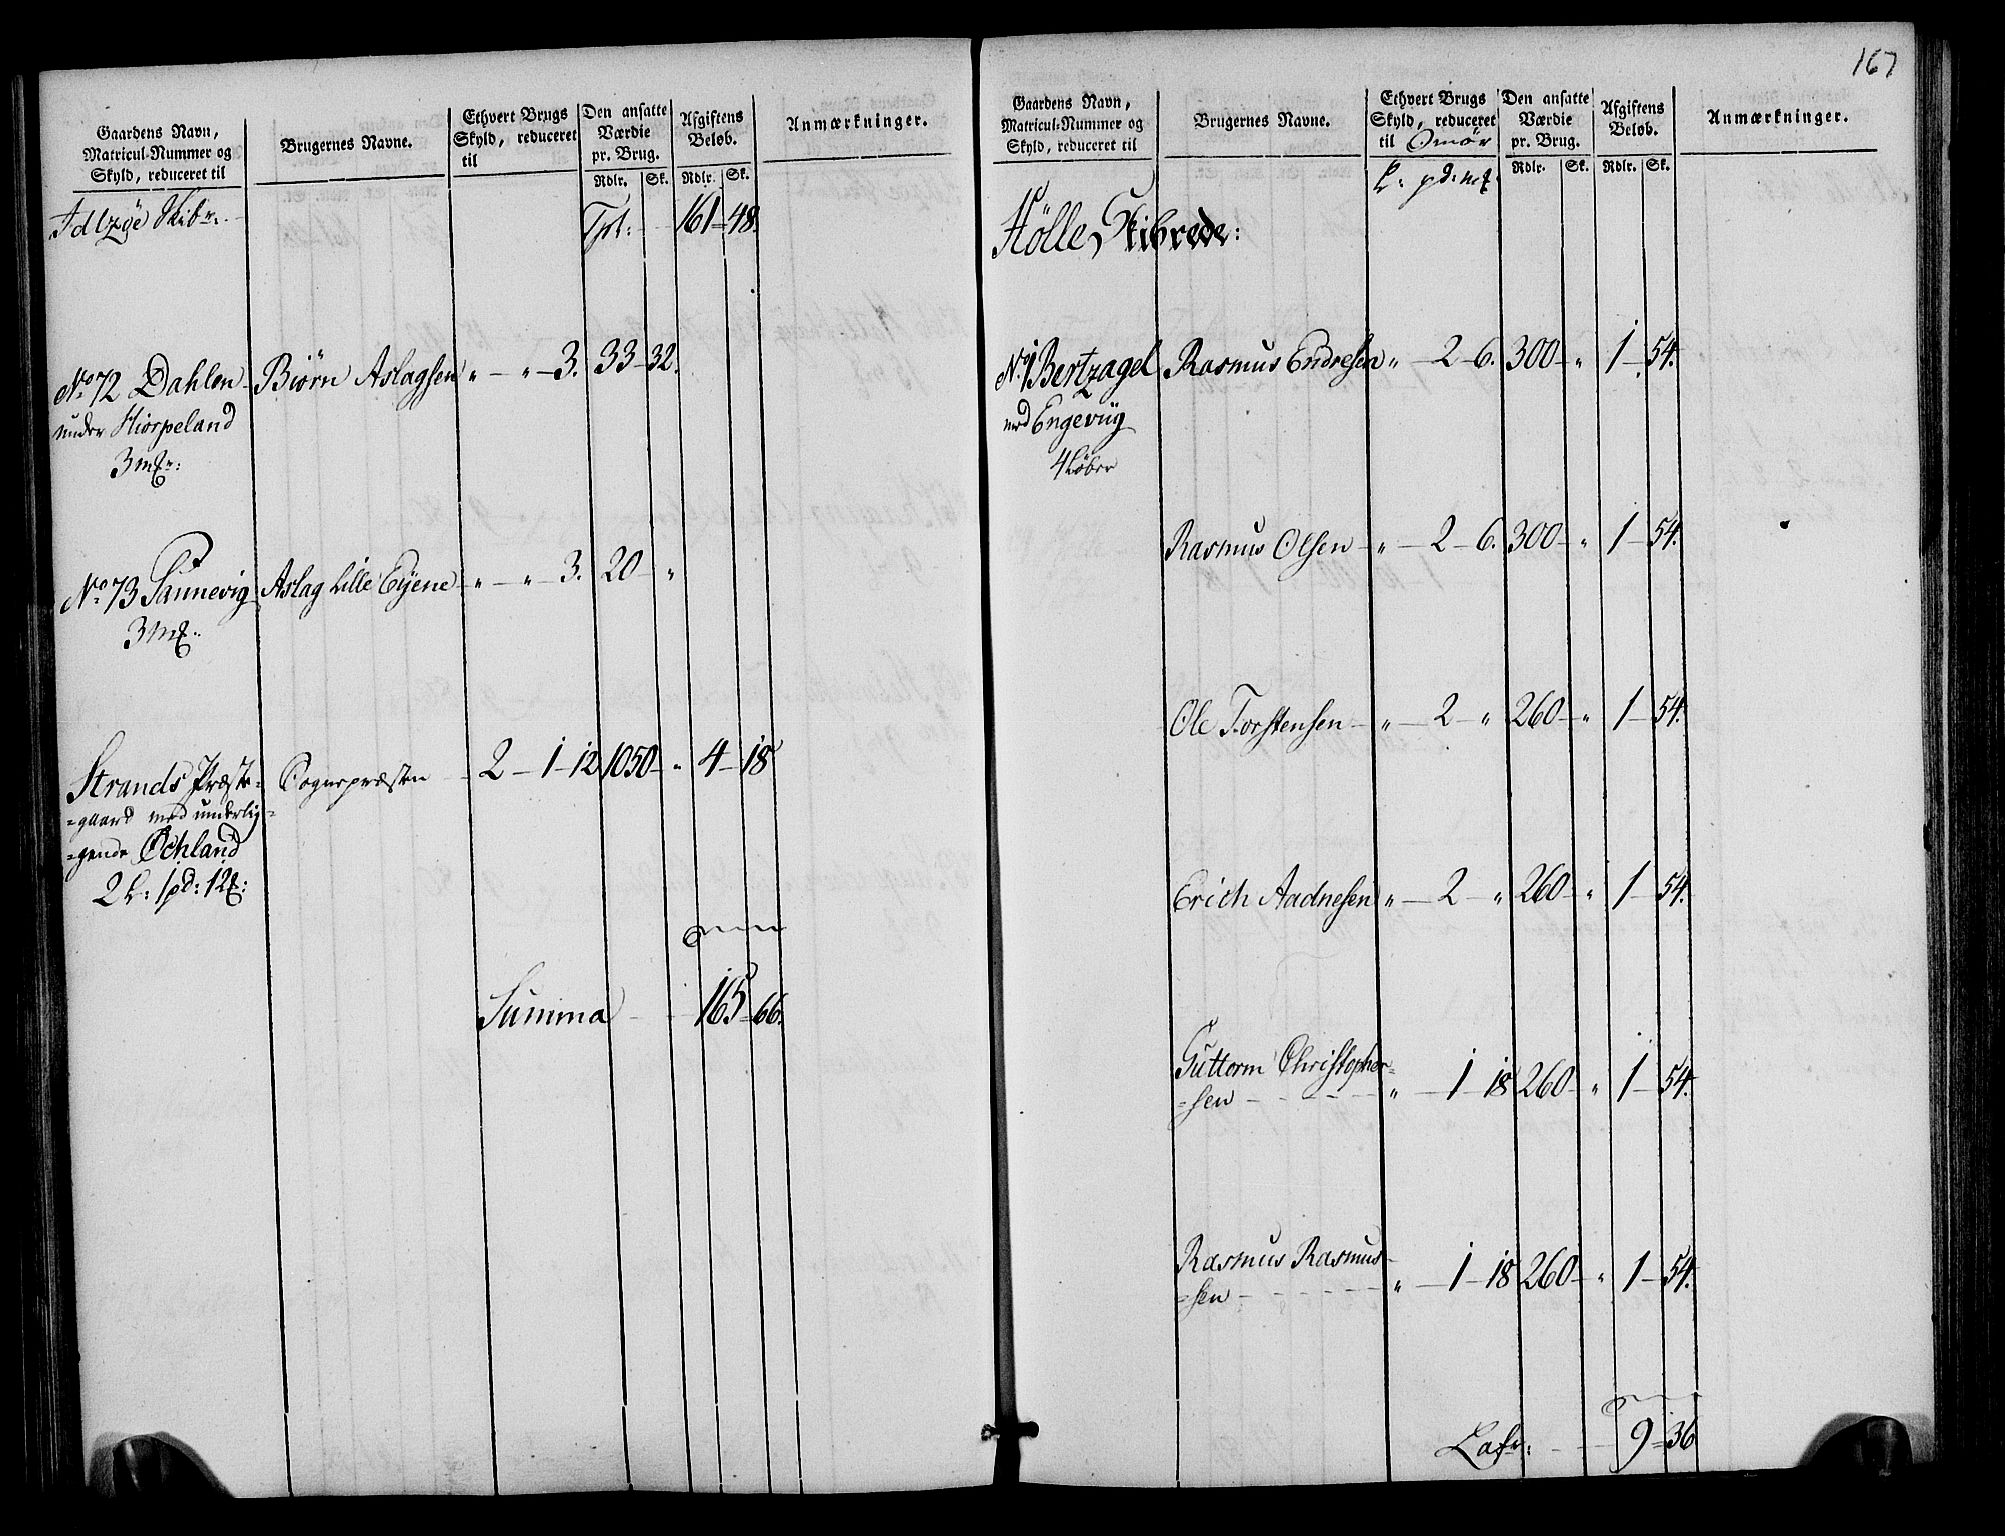 Gaardens Navn,
Matricul-Nummer og
Skyld, reduceret til
Brugernes Navne.
Ethvert Brugs
Skyld, reduceret
til
Den ansatte
Værdie
pr. Brug.
Rdlr. Sk.
Afgiftens
Beløb.
Rdlr. Sk.
Anmærkninger.
Idtzøe Skibr:
Tpt: 161 - 48.
No. 72 Dahlen Biørn Aslagsen " - " - 3. 33 - 32.
under Hiorpeland
3 mk:
No. 73 Tannevig Aslag Lille Eyene " - " - 3. 20 - "
3 mk:
Strands Præste- Sognepræsten 2 - 1 - 12 1050 - " 4 - 18
=gaard med underlig=
=gende Ochland
2 L: 1 pd: 12 mk:
Summa 165 - 66.
167
Gaardens Navn,
Matricul-Nummer og
Skyld, reduceret til
Brugernes Navne.
Ethvert Brugs
Skyld, reduceret
til Smör
L: pd: mk:
Den ansatte
Værdie
pr. Brug.
Rdlr. Sk.
Afgiftens
Beløb.
Rdlr. Sk.
Anmærkninger.
Hölle Skibrede:
No. 1 Bertzagel Rasmus Endresen " - 2 - 6. 300 - " 1 - 54.
med Engeviig
4 Löber
Rasmus Olsen " - 2 - 6. 300 - " 1 - 54.
Ole Torstensen " - 2 - " 260 - " 1 - 54.
Erich Aadnesen " - 2 - " 260 - " 1 - 54.
Guttorm Christopher=
=sen " - 1 - 18 260 - " 1 - 54.
Rasmus Rasmus=
=sen " - 1 - 18 260 - " 1 - 54.
Lafr: 9 - 36